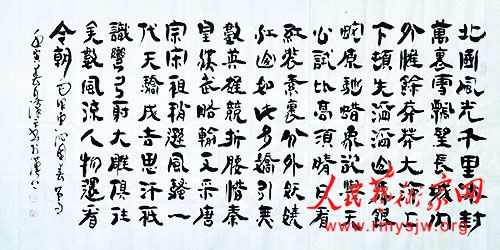 北國風光千里冰封
萬裏雪飄望長城內
外惟餘莽莽大河上
下頓失滔滔山舞銀
蛇原馳蠟象欲與天
公試比高須晴日看
紅裝素裹分外妖嬈
江山如此多嬌引無
數英雄競折腰惜秦
皇漢武略輸文采唐
宗宋祖稍遜風騷一
代天驕成吉思汗祇
識彎弓射大雕俱往
矣數風流人物還看
今朝 沁園春
人民艺术家网
www.rmysjw.org